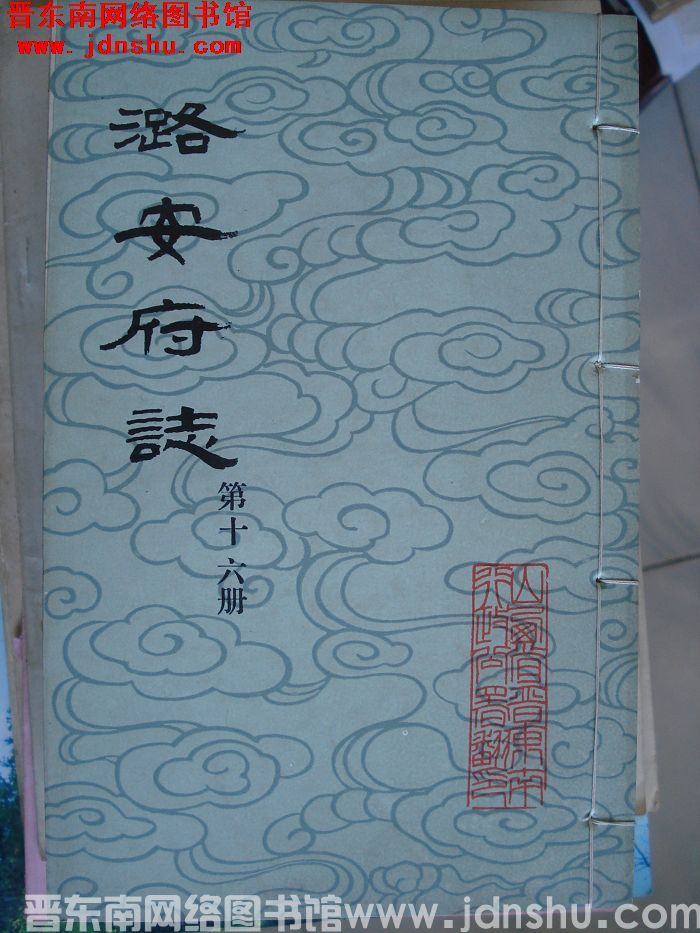 晋东南网络图书馆
www.jdnshu.com
潞安府誌
第十六册
山西省晋东南
行政公署翻印
晋东南网络图书馆www.jdnshu.com